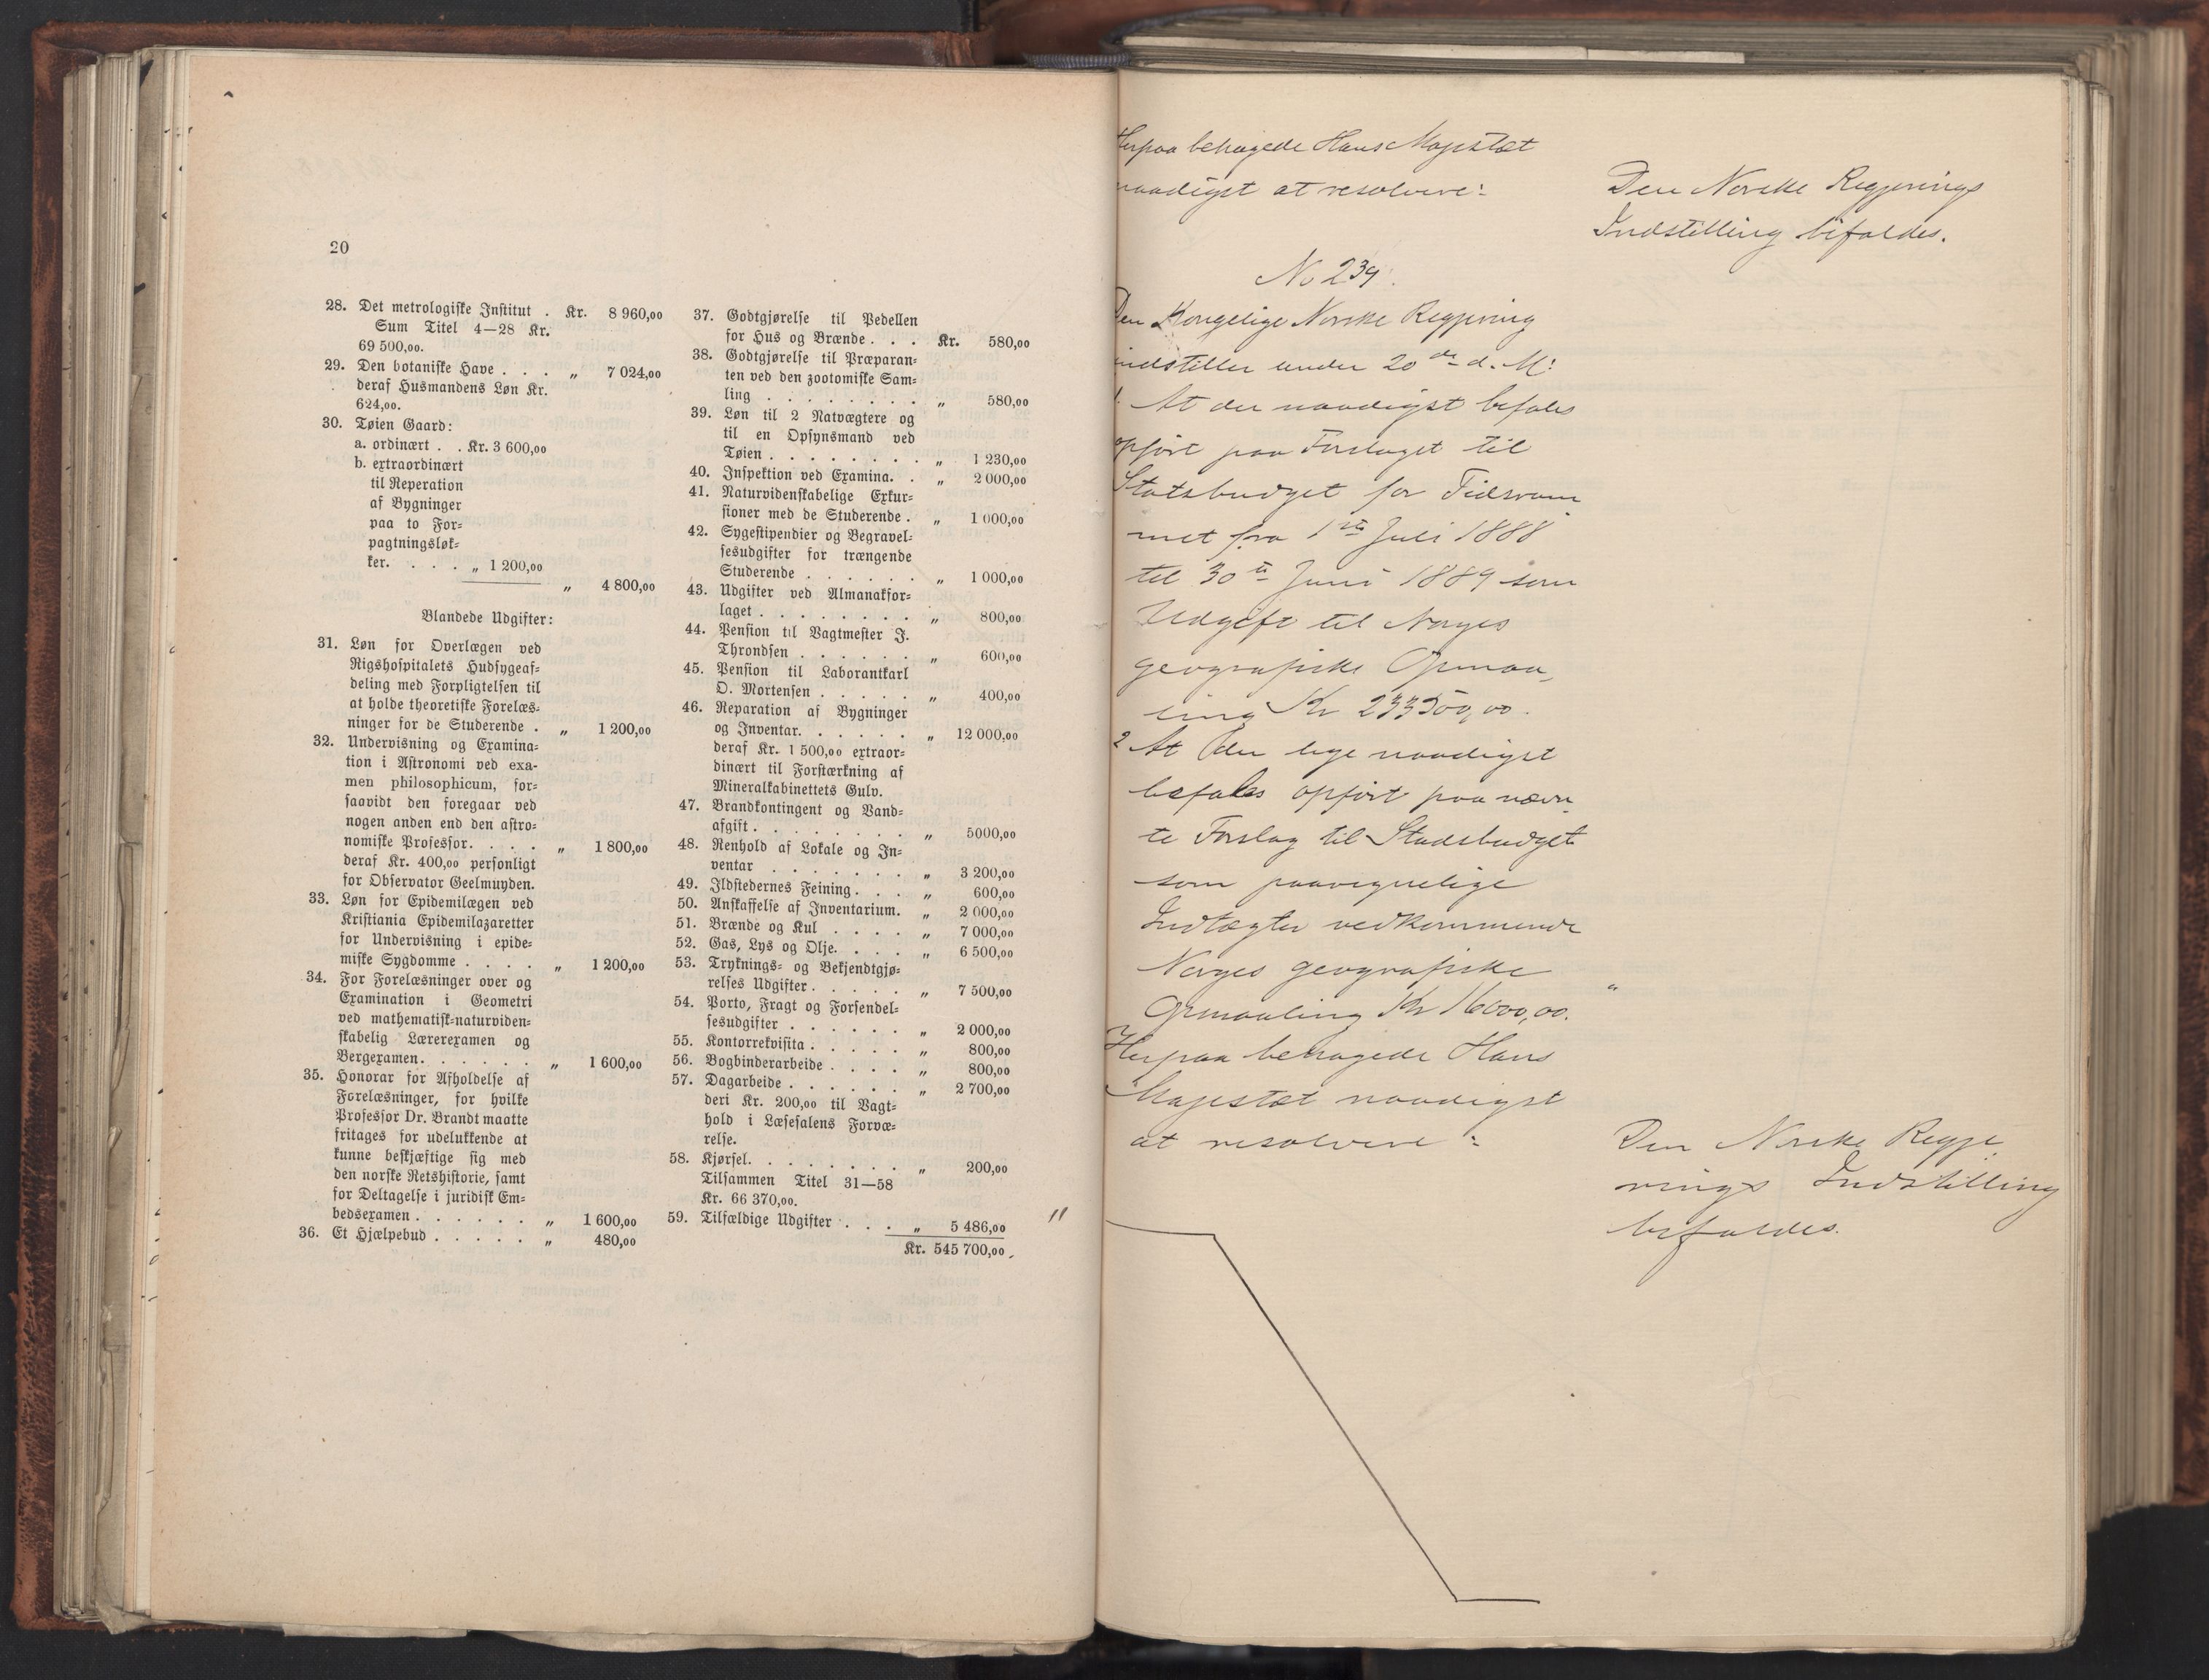 20
28. Det metrologiske Institut . Kr. 8 960,00
Sum Titel 4—28 Kr.
69 500,00.
29. Den botaniske Have . . . „ 7 024,00
deraf Husmandens Løn Kr.
624,00.
30. Tøien Gaard:
a. ordinært . . Kr. 3 600,00
b. extraordinært
til Reperation
af Bygninger
paa to For-
pagtningsløk-
ker. . . . „ 1 200,00
„ 4 800,00
Blandede Udgifter:
31. Løn for Overlægen ved
Rigshospitalets Hudsygeaf-
deling med Forpligtelsen til
at holde theoretiske Forelæs-
ninger for de Studerende . „ 1 200,00
32. Undervisning og Examina-
tion i Astronomi ved exa-
men philosophicum, for-
saavidt den foregaar ved
nogen anden end den astro-
nomiske Professor. . . . „ 1 800,00
deraf Kr. 400,00 personligt
for Observator Geelmuyden.
33. Løn for Epidemilægen ved
Kristiania Epidemilazaretter
for Undervisning i epide-
miske Sygdomme . . . . „ 1 200,00
34. For Forelæsninger over og
Examination i Geometri
ved mathematisk-naturviden-
skabelig Lærerexamen og
Bergexamen. . . . . . „ 1 600,00
35. Honorar for Afholdelse af
Forelæsninger, for hvilke
Professor Dr. Brandt maatte
fritages for udelukkende at
kunne beskjæftige sig med
den norske Retshistorie, samt
for Deltagelse i juridisk Em-
bedsexamen . . . . . . „ 1 600,00
36. Et Hjælpebud . . . . . „ 480,00
37. Godtgjørelse til Pedellen
for Hus og Brænde . . . Kr. 580,00
38. Godtgjørelse til Præparan-
ten ved den zootomiske Sam-
ling . . . . . . . . „ 580,00
39. Løn til 2 Natvægtere og
til en Opsynsmand ved
Tøien . . . . . . . . „ 1 230,00
40. Inspektion ved Examina. . „ 2 000,00
41. Naturvidenskabelige Exkur-
sioner med de Studerende . „ 1 000,00
42. Sygestipendier og Begravel-
sesudgifter for trængende
Studerende . . . . . . „ 1 000,00
43. Udgifter ved Almanakfor-
laget . . . . . . . . „ 800,00
44. Pension til Vagtmester J.
Throndsen . . . . . . „ 600,00
45. Pension til Laborantkarl
O. Mortensen . . . . . „ 400,00
46. Reparation af Bygninger
og Inventar. . . . . . „ 12 000,00
deraf Kr. 1 500,00 extraor-
dinært til Forstærkning af
Mineralkabinettets Gulv.
47. Brandkontingent og Vand-
afgift . . . . . . . . „ 5000,00
48. Renhold af Lokale og In-
ventar . . . . . . . „ 3 200,00
49. Ildstedernes Feining . . . „ 600,00
50. Anskaffelse af Inventarium. „ 2 000,00
51. Brænde og Kul . . . . „ 7 000,00
52. Gas, Lys og Olje. . . . „ 6 500,00
53. Tryknings- og Bekjendtgjø-
relses Udgifter . . . . . „ 7 500,00
54. Porto, Fragt og Forsendel-
sesudgifter . . . . . . „ 2 000,00
55. Kontorrekvisita . . . . . „ 800,00
56. Bogbinderarbeide . . . . „ 800,00
57. Dagarbeide . . . . . . „ 2 700,00
deri Kr. 200,00 til Vagt-
hold i Læsesalens Forvæ-
relse.
58. Kjørsel. . . . . . . . „ 200,00
Tilsammen Titel 31—58
Kr. 66 370,00.
59. Tilfældige Udgifter . . . „ 5 486,00
Kr. 545 700,00.
Herpaa behagede Hans Majestæt
naadigst at resolvere:
Den Norske Regjerings
Indstilling bifaldes.
No 239.
Den Kongelige Norske Regjering
indstiller under 20de d. M:
1. At der naadigst befales
opført paa Forslaget til
Statsbudget for Tidsrum
met fra 1ste Juli 1888
til 30te Juni 1889 som
Udgift til Norges
geografiske Opmaa,
ling Kr 233500,00.
2 At der lige naadigst
befales opført paa nævn
te Forslag til Stadsbudget
som paaregnelige
Indtægter vedkommende
Norges geografiske
Opmaaling Kr 16000,00.
Herpaa behagede Hans
Majestæt naadigst
at resolvere :
Den Norske Regje
rings Indstilling
bifaldes.